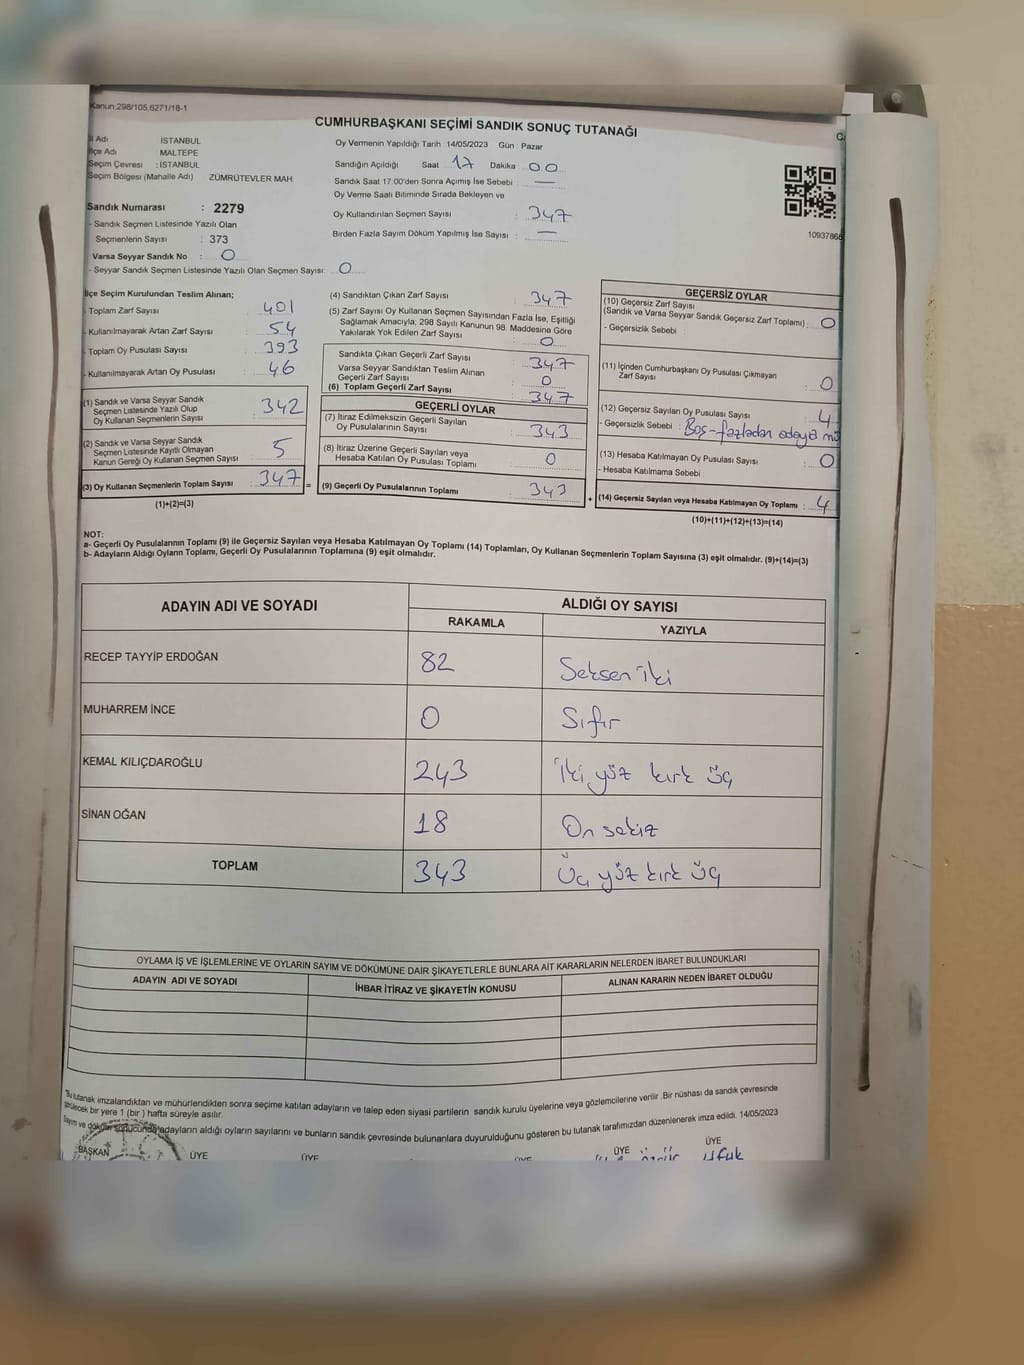 Kanun,298/105,6271/18-1
CUMHURBAŞKANI SEÇİMİ SANDIK SONUÇ TUTANAĞI
İl Adı İSTANBUL
İlçe Adı MALTEPE
Seçim Çevresi : İSTANBUL
Seçim Bölgesi (Mahalle Adı) ZÜMRÜTEVLER MAH
Sandık Numarası : 2279
- Sandık Seçmen Listesinde Yazılı Olan
Seçmenlerin Sayısı : 373
Varsa Seyyar Sandık No : 0
- Seyyar Sandık Seçmen Listesinde Yazılı Olan Seçmen Sayısı: 0
Oy Vermenin Yapıldığı Tarih : 14/05/2023 Gün : Pazar
Sandığın Açıldığı Saat 17 Dakika 00
Sandık Saat 17:00'den Sonra Açımış İse Sebebi : —
Oy Verme Saati Bitiminde Sırada Bekleyen ve
Oy Kullandırılan Seçmen Sayısı : 347
Birden Fazla Sayım Döküm Yapılmış İse Sayısı : —
10937868
İlçe Seçim Kurulundan Teslim Alınan;
- Toplam Zarf Sayısı : 401
- Kullanılmayarak Artan Zarf Sayısı : 54
- Toplam Oy Pusulası Sayısı : 393
- Kullanılmayarak Artan Oy Pusulası : 46
(1) Sandık ve Varsa Seyyar Sandık
Seçmen Listesinde Yazılı Olup
Oy Kullanan Seçmenlerin Sayısı : 342
(2) Sandık ve Varsa Seyyar Sandık
Seçmen Listesinde Kayıtlı Olmayan
Kanun Gereği Oy Kullanan Seçmen Sayısı : 5
(3) Oy Kullanan Seçmenlerin Toplam Sayısı : 347 =
(1)+(2)=(3)
(4) Sandıktan Çıkan Zarf Sayısı : 347
(5) Zarf Sayısı Oy Kullanan Seçmen Sayısından Fazla İse, Eşitliği
Sağlamak Amacıyla, 298 Sayılı Kanunun 98. Maddesine Göre
Yakılarak Yok Edilen Zarf Sayısı : 0
Sandıkta Çıkan Geçerli Zarf Sayısı : 347
Varsa Seyyar Sandıktan Teslim Alınan
Geçerli Zarf Sayısı : 0
(6) Toplam Geçerli Zarf Sayısı : 347
GEÇERLİ OYLAR
(7) İtiraz Edilmeksizin Geçerli Sayılan
Oy Pusulalarının Sayısı : 343
(8) İtiraz Üzerine Geçerli Sayılan veya
Hesaba Katılan Oy Pusulası Toplamı : 0
(9) Geçerli Oy Pusulalarının Toplamı : 343 +
GEÇERSİZ OYLAR
(10) Geçersiz Zarf Sayısı
(Sandık ve Varsa Seyyar Sandık Geçersiz Zarf Toplamı) : 0
- Geçersizlik Sebebi :
(11) İçinden Cumhurbaşkanı Oy Pusulası Çıkmayan
Zarf Sayısı : 0
(12) Geçersiz Sayılan Oy Pusulası Sayısı : 4
- Geçersizlik Sebebi : Boş-fazladan adaya mü
(13) Hesaba Katılmayan Oy Pusulası Sayısı : 0
- Hesaba Katılmama Sebebi :
(14) Geçersiz Sayılan veya Hesaba Katılmayan Oy Toplamı : 4
(10)+(11)+(12)+(13)=(14)
NOT:
a- Geçerli Oy Pusulalarının Toplamı (9) ile Geçersiz Sayılan veya Hesaba Katılmayan Oy Toplamı (14) Toplamları, Oy Kullanan Seçmenlerin Toplam Sayısına (3) eşit olmalıdır. (9)+(14)=(3)
b- Adayların Aldığı Oyların Toplamı, Geçerli Oy Pusulalarının Toplamına (9) eşit olmalıdır.
ADAYIN ADI VE SOYADI
ALDIĞI OY SAYISI
RAKAMLA YAZIYLA
RECEP TAYYİP ERDOĞAN 82 Seksen iki
MUHARREM İNCE 0 Sıfır
KEMAL KILIÇDAROĞLU 243 İki yüz kırk üç
SİNAN OĞAN 18 On sekiz
TOPLAM 343 Üç yüz kırk üç
OYLAMA İŞ VE İŞLEMLERİNE VE OYLARIN SAYIM VE DÖKÜMÜNE DAİR ŞİKAYETLERLE BUNLARA AİT KARARLARIN NELERDEN İBARET BULUNDUKLARI
ADAYIN ADI VE SOYADI İHBAR İTİRAZ VE ŞİKAYETİN KONUSU ALINAN KARARIN NEDEN İBARET OLDUĞU
"Bu tutanak imzalandıktan ve mühürlendikten sonra seçime katılan adayların ve talep eden siyasi partilerin sandık kurulu üyelerine veya gözlemcilerine verilir .Bir nüshası da sandık çevresinde
görülecek bir yere 1 (bir ) hafta süreyle asılır.
Sayım ve döküm sonucunda adayların aldığı oyların sayılarını ve bunların sandık çevresinde bulunanlara duyurulduğunu gösteren bu tutanak tarafımızdan düzenlenerek imza edildi. 14/05/2023
BAŞKAN ÜYE ÜYE ÜYE ÜYE ÜYE
Ufuk